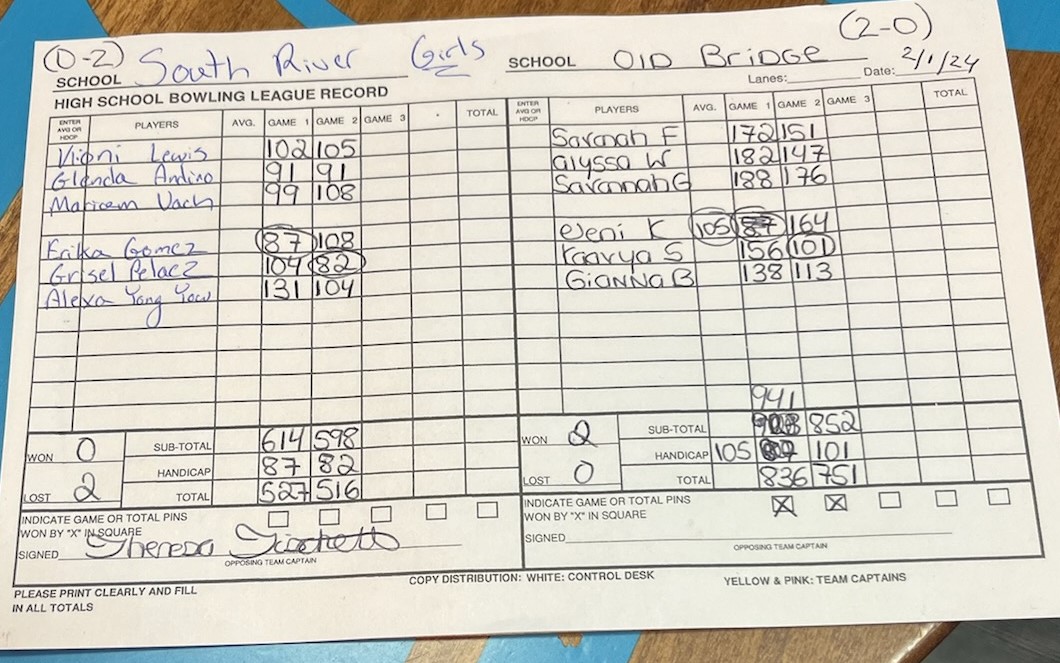 (0-2) South River Girls
SCHOOL
SCHOOL OlD Bridge (2-0)
Lanes: Date: 2/1/24
HIGH SCHOOL BOWLING LEAGUE RECORD
ENTER AVG OR HDCP PLAYERS AVG. GAME 1 GAME 2 GAME 3 TOTAL
ENTER AVG OR HDCP PLAYERS AVG. GAME 1 GAME 2 GAME 3 TOTAL
Lewis 102 105
Glenda Andino 91 91
99 108
Erika Gomez 87 108
Grisel Pelaez 104 82
Alexa Yang 131 104
Savanah F 172 151
alyssa W 182 147
Savannah G 188 176
Jeni K 105 164
Kaavya S 156 101
Gianna B 138 113
WON 0
LOST 2
SUB-TOTAL 614 598
HANDICAP 87 82
TOTAL 527 516
941
WON 2
LOST 0
SUB-TOTAL 852
HANDICAP 105 101
TOTAL 836 751
INDICATE GAME OR TOTAL PINS
WON BY "X" IN SQUARE
SIGNED Theresa
OPPOSING TEAM CAPTAIN
INDICATE GAME OR TOTAL PINS
WON BY "X" IN SQUARE X X
SIGNED
OPPOSING TEAM CAPTAIN
PLEASE PRINT CLEARLY AND FILL
IN ALL TOTALS
COPY DISTRIBUTION: WHITE: CONTROL DESK YELLOW & PINK: TEAM CAPTAINS